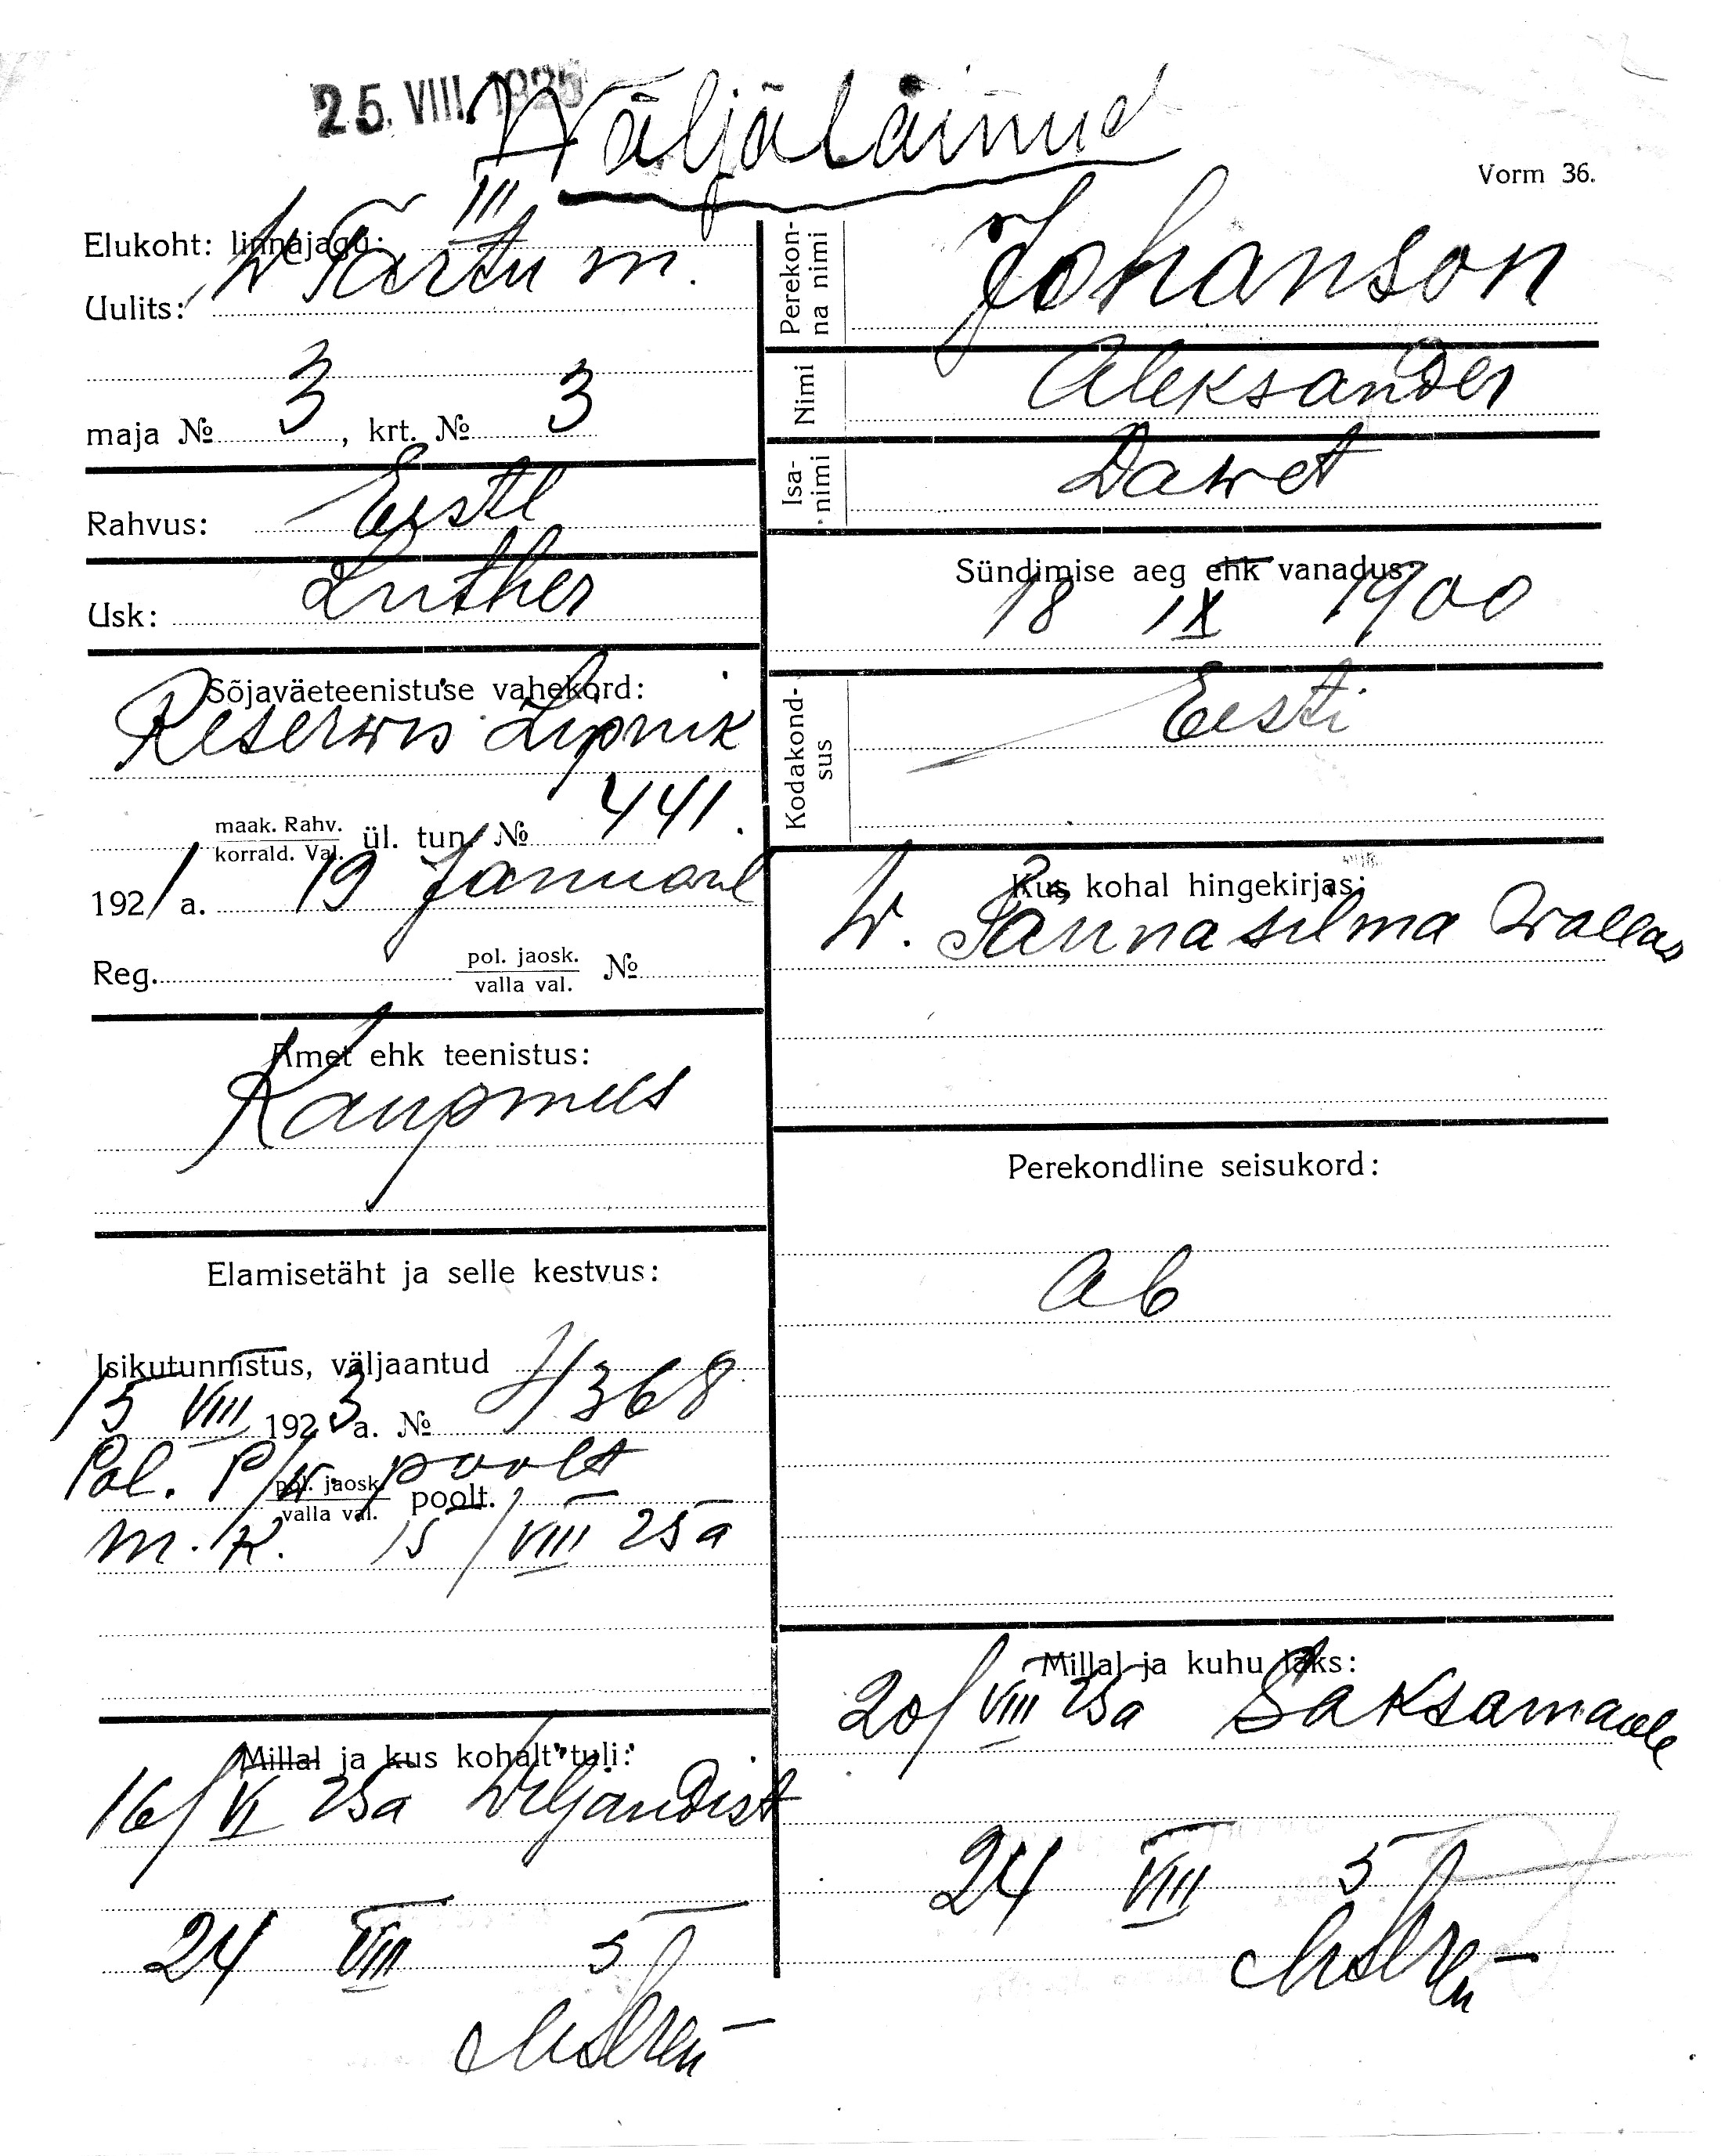 25. VIII. 1925
Wäljaläinud
Vorm 36.
Elukoht: linnajagu: III
Uulits: W Tartu m.
maja № 3, krt. № 3
Rahvus: Eesti
Usk: Luther
Sõjaväeteenistuse vahekord:
Reserwis Lipnik
maak. Rahv.
korrald. Val. ül. tun. № 441.
1921 a. 19 Januaril
Reg. pol. jaosk.
valla val. №
Amet ehk teenistus:
Kaupmees
Elamisetäht ja selle kestvus:
Isikutunnistus, väljaantud
15 VIII 1923 a. № 368
Pol. poolt
pol. jaosk.
valla val. poolt.
m. k. 15/VIII 25 a
Millal ja kus kohalt tuli:
16/VI 25 a Wiljandist
24 VIII 5
Perekonna nimi Johanson
Nimi Aleksander
Isanimi Dawet
Sündimise aeg ehk vanadus:
18 IX 1900
Kodakondsus Eesti
Kus kohal hingekirjas:
W. Pännasilma wallas
Perekondline seisukord:
Ab
Millal ja kuhu läks:
20/VIII 25 a Saksamaale
24 VIII 5